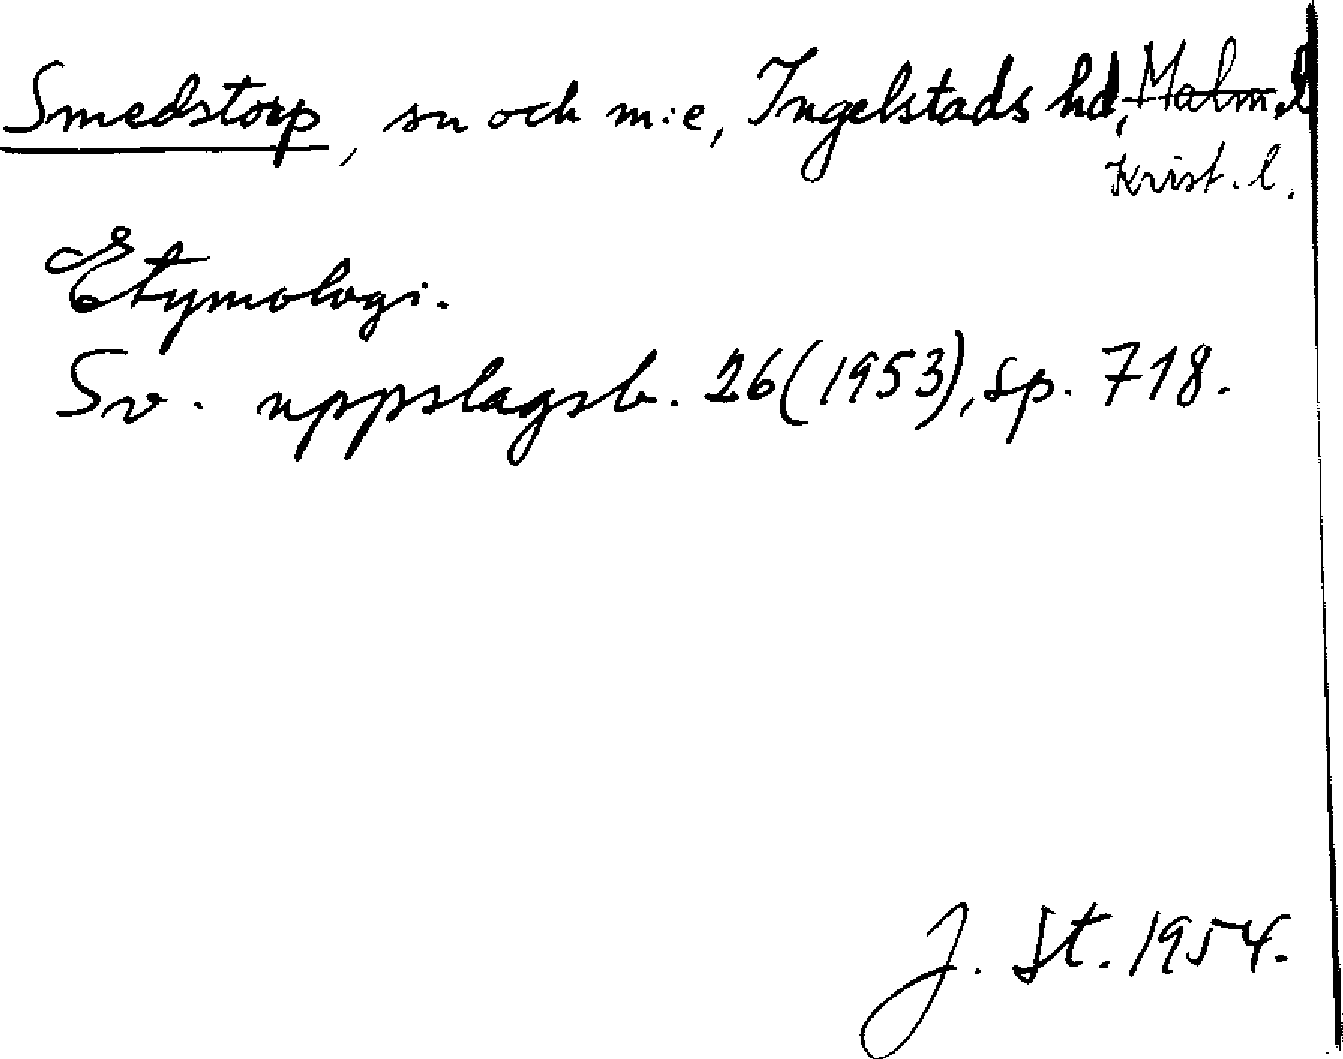 Smedstorp, sn och m:e, Ingelstads hd, Malm.l
Krist. l.
Etymologi.
Sv. uppslagsb. 26(1953), sp. 718.
J. St. 1954.